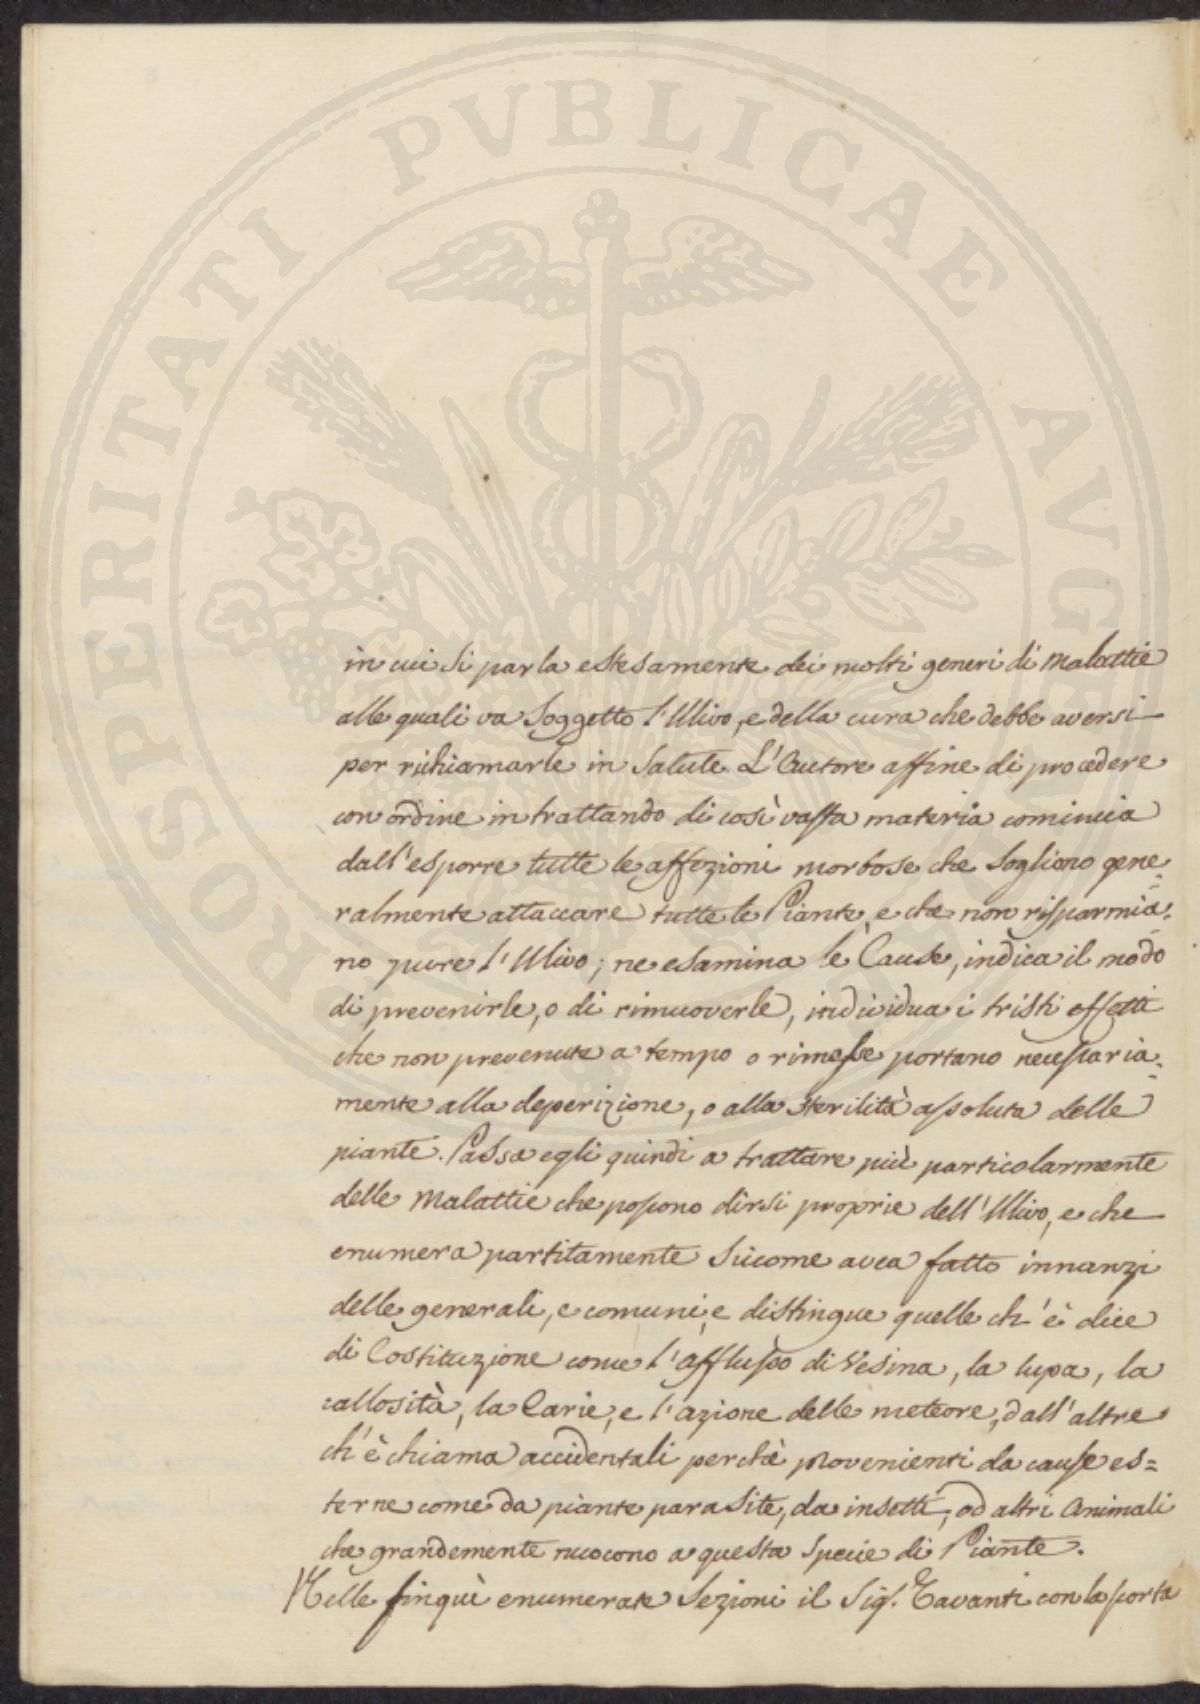 PROSPERITATI PVBLICAE AVGENDAE
in cui si parla estesamente dei molti generi di Malattie
alle quali va soggetto l'Ulivo, e della cura che debbe aversi
per richiamarle in salute. L'Autore affine di procedere
con ordine in trattando di così vasta materia comincia
dall'esporre tutte le affezioni morbose che sogliono gene=
ralmente attaccare tutte le Piante, e che non risparmia=
no pure l'Ulivo; ne esamina le Cause, indica il modo
di prevenirle, o di rimuoverle, individua i tristi effetti
che non prevenute a tempo o rimesse portano necessaria=
mente alla deperizione, o alla sterilità assoluta delle
piante. Passa egli quindi a trattare più particolarmente
delle Malattie che possono dirsi proprie dell'Ulivo, e che
enumera partitamente siccome avea fatto innanzi
delle generali, e comuni, e distingue quelle ch'è dice
di Costituzione come l'afflusso di Resina, la lupa, la
callosità, la Carie, e l'azione delle meteore, dall'altre
ch'è chiama accidentali perchè provenienti da cause es=
terne come da piante parasite, da insetti, od altri Animali
che grandemente nuocono a questa specie di Piante.
Nelle finquì enumerate Sezioni il Sig.r Tavanti con la scorta